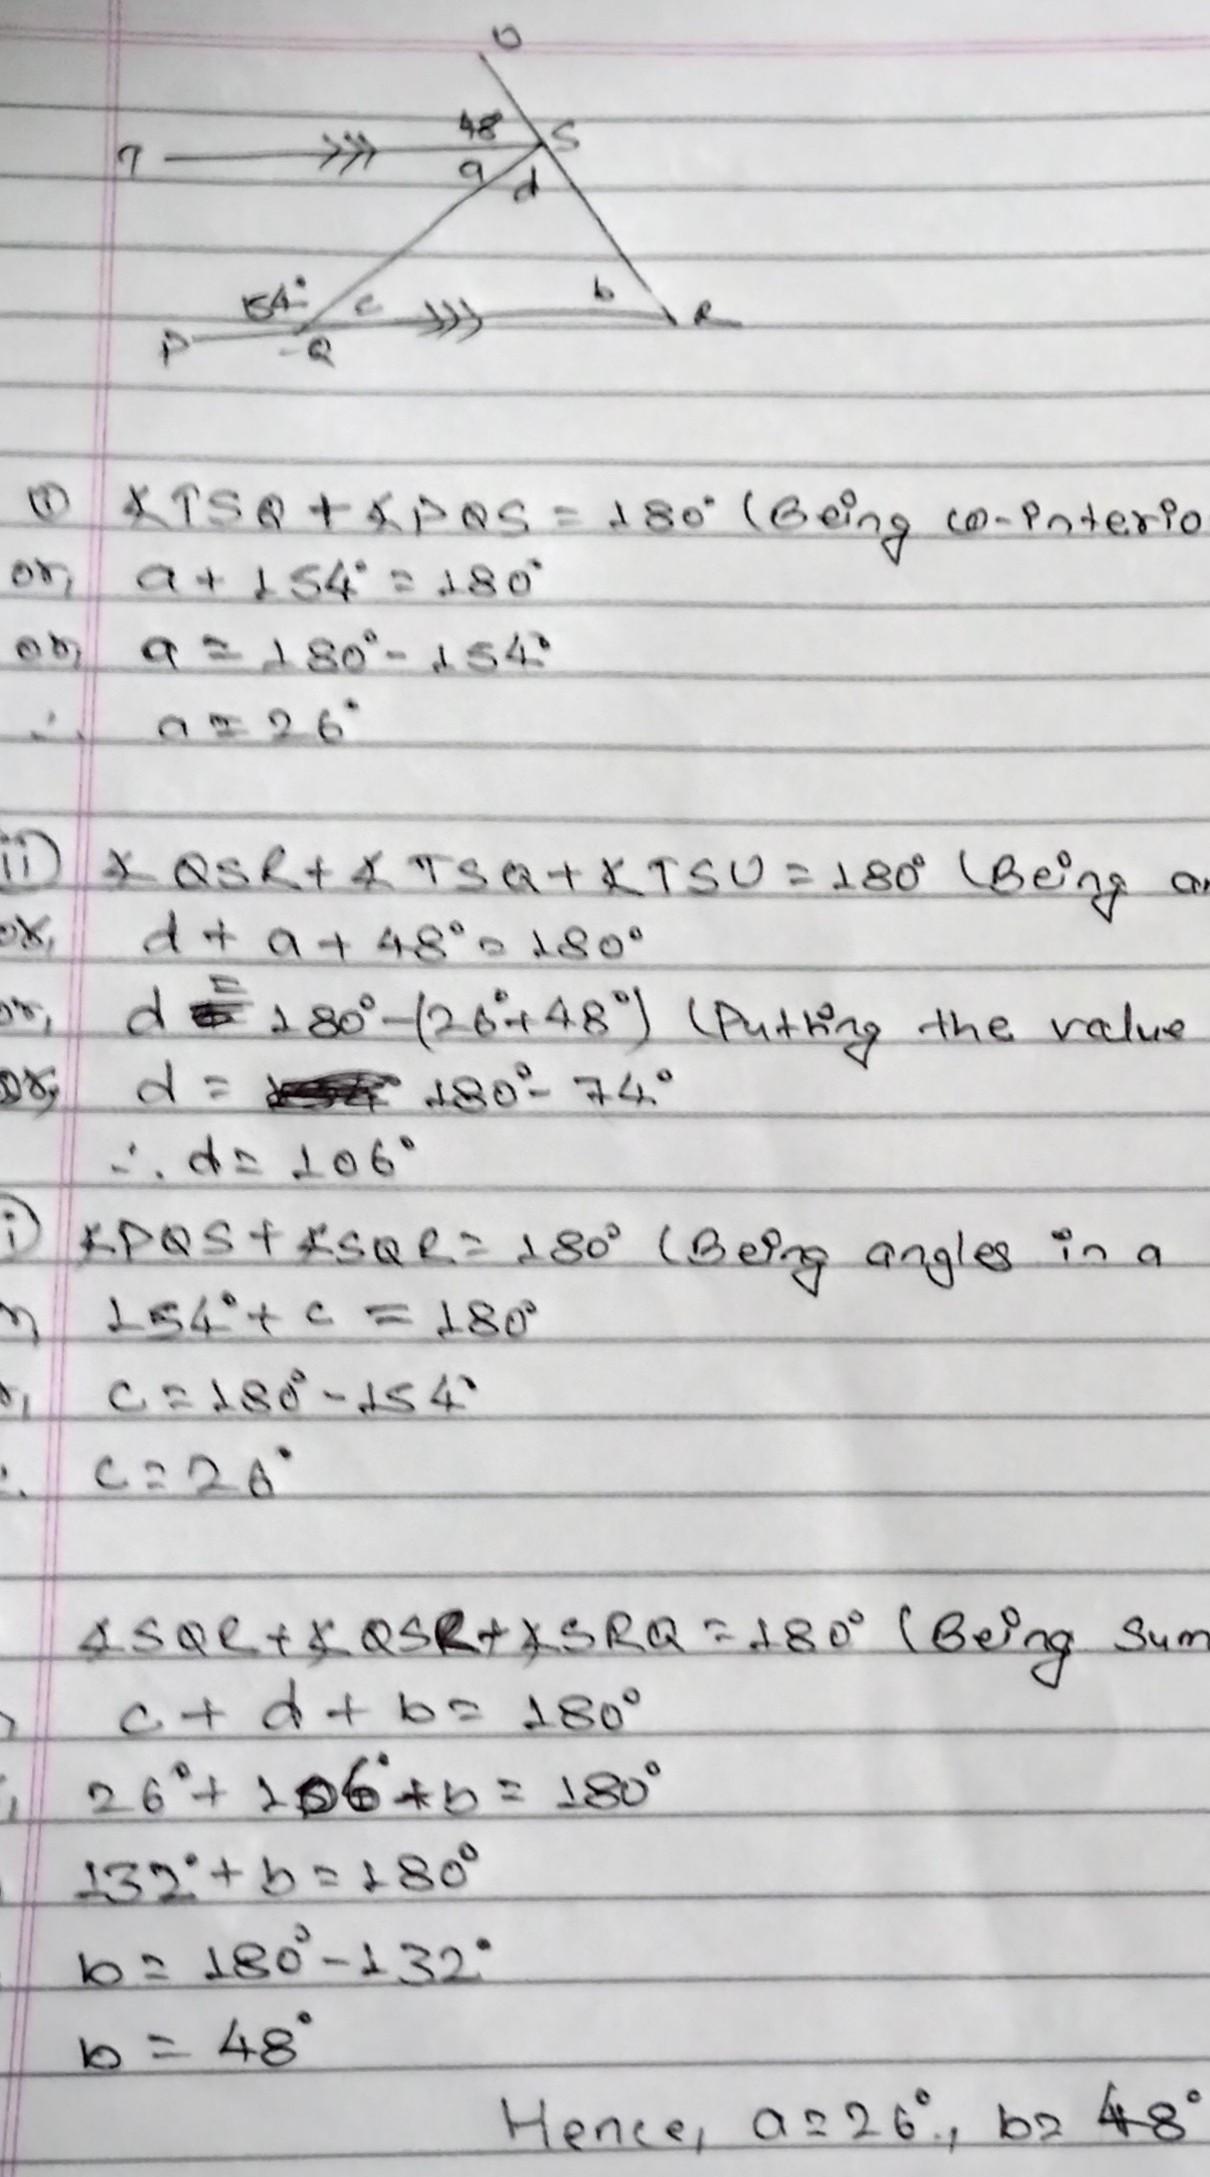 U
48° S
T a d
154° c b R
P Q
(i) ∡TSQ + ∡PQS = 180° (Being co-interio
or, a + 154° = 180°
or, a = 180° - 154°
∴ a = 26°
ii) ∡QSR + ∡TSQ + ∡TSU = 180° (Being an
or, d + a + 48° = 180°
or, d = 180° - (26° + 48°) (Putting the value
or, d = 180° - 74°
∴ d = 106°
i) ∡PQS + ∡SQR = 180° (Being angles in a
154° + c = 180°
c = 180° - 154°
∴ c = 26°
∡SQR + ∡QSR + ∡SRQ = 180° (Being Sum
c + d + b = 180°
26° + 106° + b = 180°
132° + b = 180°
b = 180° - 132°
b = 48°
Hence, a = 26°, b = 48°